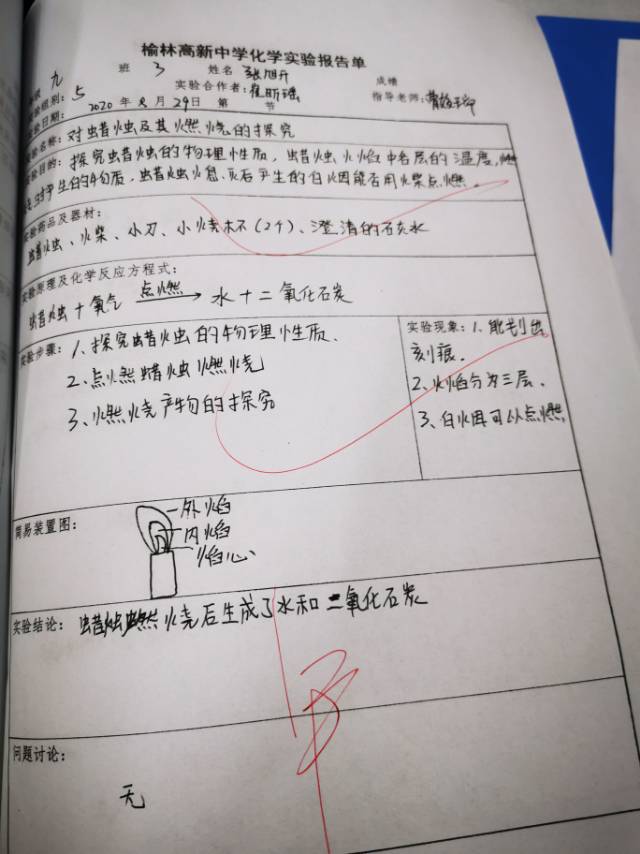 榆林高新中学化学实验报告单
九 班 3 姓名 张旭升 成绩
实验组别: 5 实验合作者: 崔昕瑶 指导老师:
实验日期: 2020 年 8 月 29 日 第 节
实验名称: 对蜡烛及其燃烧的探究
实验目的: 探究蜡烛的物理性质,蜡烛火焰中各层的温度,燃
烧时产生的物质,蜡烛火熄灭后产生的白烟能否用火柴点燃。
实验药品及器材:
蜡烛、火柴、小刀、小烧杯(2个)、澄清的石灰水
实验原理及化学反应方程式:
蜡烛+氧气 点燃→ 水+二氧化石炭
实验步骤: 1、探究蜡烛的物理性质.
2、点燃蜡烛燃烧
3、燃烧产物的探究
实验现象: 1、能刻出
刻痕.
2、火焰分为三层.
3、白烟可以点燃.
简易装置图:
外焰
内焰
焰心
实验结论: 蜡烛燃烧后生成了水和二氧化石炭
问题讨论:
无